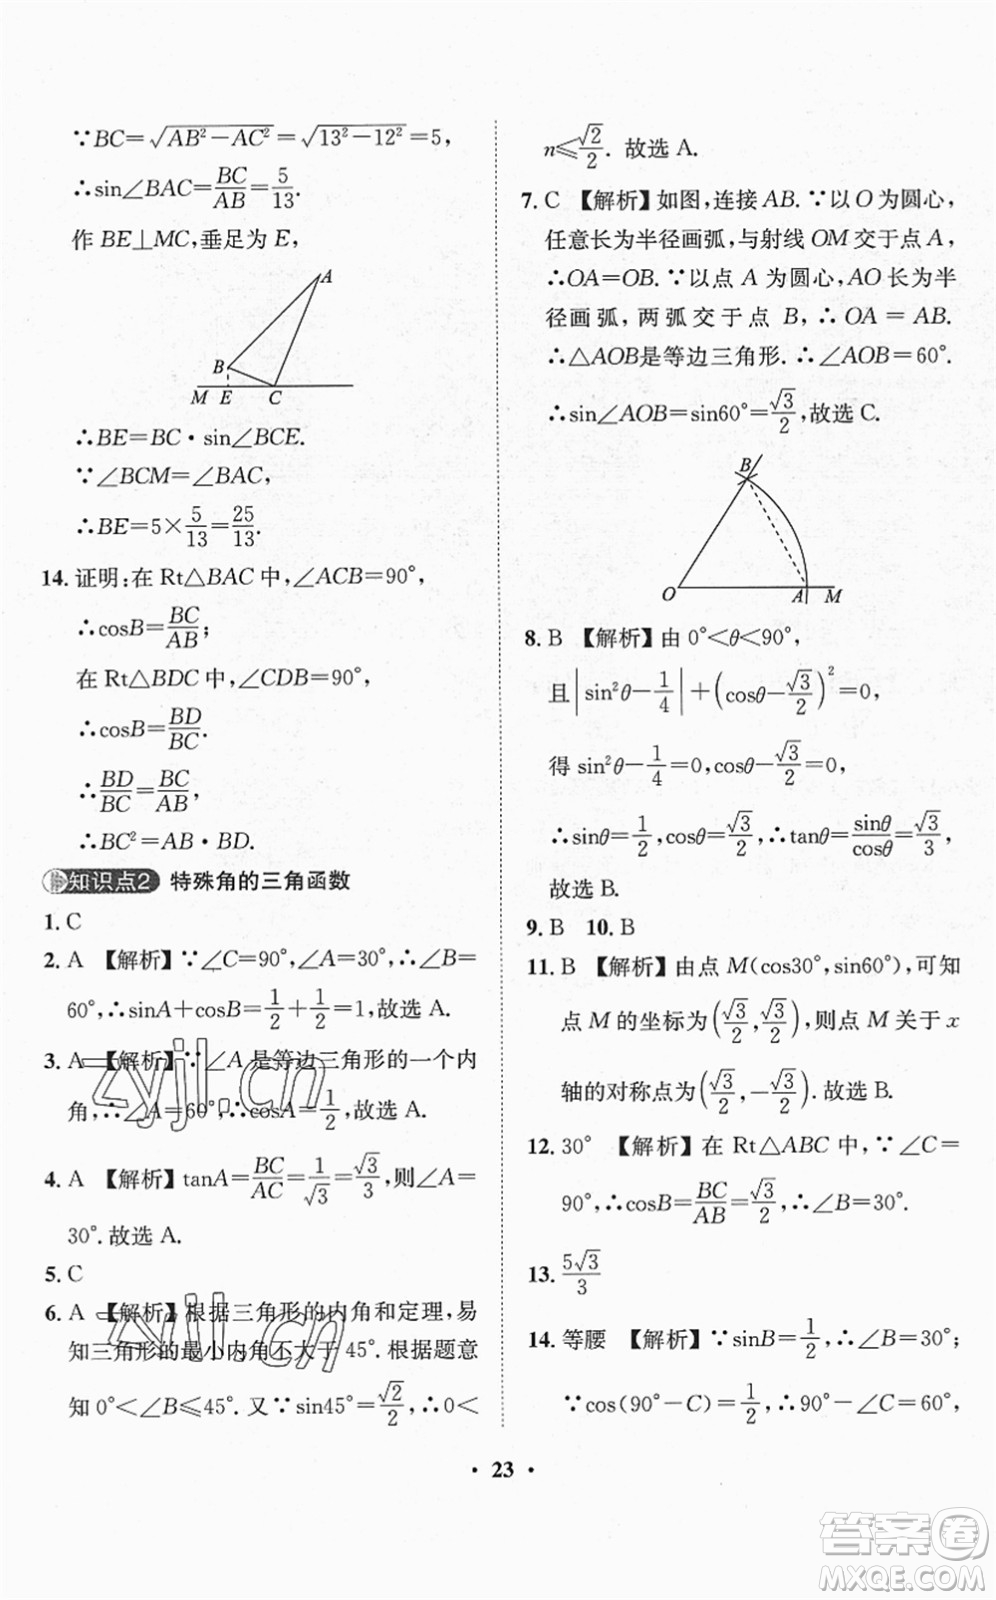 ∵BC=√(AB²−AC²)=√(13²−12²)=5,
∴sin∠BAC=BC/AB=5/13.
作 BE⊥MC,垂足为 E,
A
B
M E C
∴BE=BC·sin∠BCE.
∵∠BCM=∠BAC,
∴BE=5×5/13=25/13.
14. 证明:在 Rt△BAC 中,∠ACB=90°,
∴cosB=BC/AB;
在 Rt△BDC 中,∠CDB=90°,
∴cosB=BD/BC.
∴BD/BC=BC/AB,
∴BC²=AB·BD.
知识点2 特殊角的三角函数
1. C
2. A 【解析】∵∠C=90°,∠A=30°,∴∠B=
60°,∴sinA+cosB=1/2+1/2=1,故选 A.
3. A 【解析】∵∠A 是等边三角形的一个内
角,∴∠A=60°,∴cosA=1/2,故选 A.
4. A 【解析】tanA=BC/AC=1/√3=√3/3,则∠A=
30°.故选 A.
5. C
6. A 【解析】根据三角形的内角和定理,易
知三角形的最小内角不大于 45°.根据题意
知 0°<∠B≤45°.又∵sin45°=√2/2,∴0<
n≤√2/2. 故选 A.
7. C 【解析】如图,连接 AB.∵以 O 为圆心,
任意长为半径画弧,与射线 OM 交于点 A,
∴OA=OB.∵以点 A 为圆心,AO 长为半
径画弧,两弧交于点 B,∴OA=AB.
∴△AOB是等边三角形.∴∠AOB=60°.
∴sin∠AOB=sin60°=√3/2,故选 C.
B
O A M
8. B 【解析】由 0°<θ<90°,
且|sin²θ−1/4|+(cosθ−√3/2)²=0,
得 sin²θ−1/4=0,cosθ−√3/2=0,
∴sinθ=1/2,cosθ=√3/2,∴tanθ=sinθ/cosθ=√3/3,
故选 B.
9. B 10. B
11. B 【解析】由点 M(cos30°,sin60°),可知
点 M 的坐标为(√3/2,√3/2),则点 M 关于 x
轴的对称点为(√3/2,−√3/2).故选 B.
12. 30° 【解析】在 Rt△ABC 中,∵∠C=
90°,∴cosB=BC/AB=√3/2,∴∠B=30°.
13. 5√3/3
14. 等腰 【解析】∵sinB=1/2,∴∠B=30°;
∵cos(90°−C)=1/2,∴90°−C=60°,
· 23 ·
zyjl.cn
zyjl.cn
答案卷
MXQE.COM